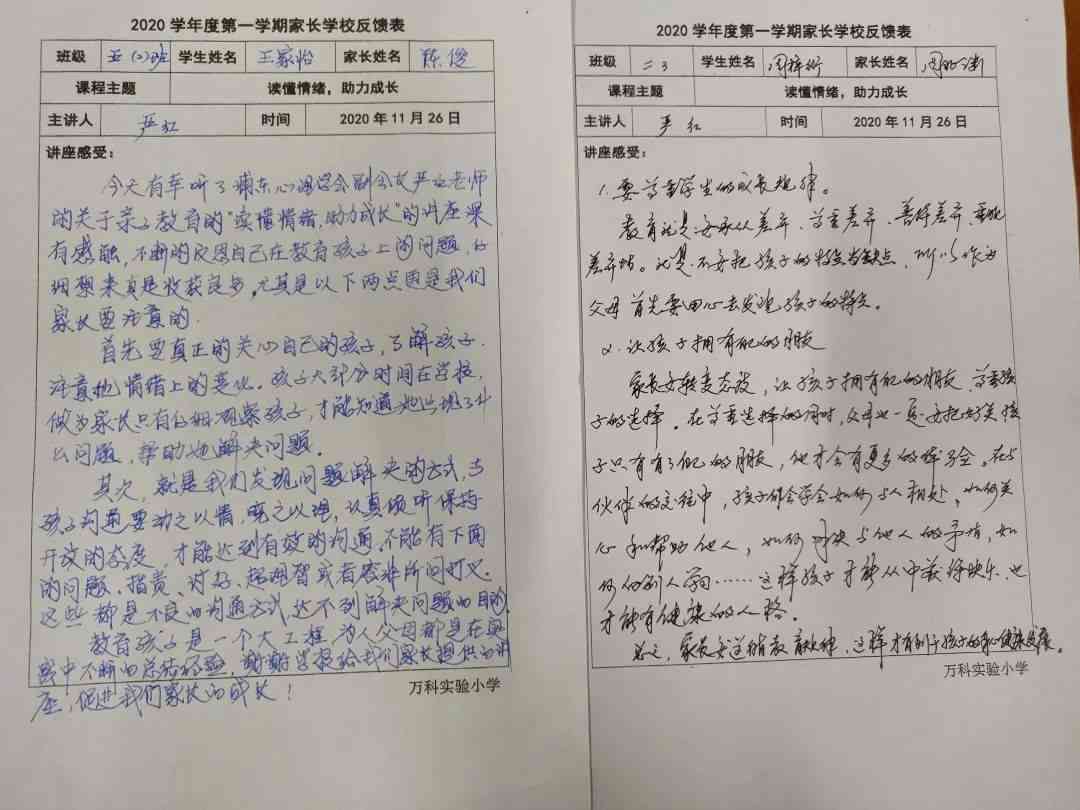 2020 学年度第一学期家长学校反馈表
班级 五(2)班 学生姓名 王家怡 家长姓名 陈俊
课程主题 读懂情绪，助力成长
主讲人 严红 时间 2020 年 11 月 26 日
讲座感受：
今天有幸听了浦东心理学会副会长严红老师
的关于亲子教育的“读懂情绪，助力成长”的讲座深
有感触，不断的反思自己在教育孩子上的问题，仔
细想来真是收获良多。尤其是以下两点因是我们
家长要注意的.
首先要真正的关心自己的孩子，了解孩子.
注意她情绪上的变化。孩子大部分时间在学校，
做为家长只有仔细观察孩子，才能知道她出现了什
么问题，帮助她解决问题。
其次，就是我们发现问题解决的方式，与
孩子沟通要动之以情，晓之以理，认真倾听保持
开放的态度，才能达到有效的沟通。不能有下面
的问题。指责、讨好、超理智或者答非所问时候.
这些都是不良的沟通方式达不到解决问题的目的.
教育孩子是一个大工程，为人父母都是在实
践中不断的总结经验，谢谢学校给我们家长提供的讲
座，促进我们家长的成长！
万科实验小学
2020 学年度第一学期家长学校反馈表
班级 二3 学生姓名 周梓 家长姓名 周
课程主题 读懂情绪，助力成长
主讲人 严红 时间 2020 年 11 月 26 日
讲座感受：
1. 要尊重学生的成长规律。
教育就是要承认差异、尊重差异、善待差异、
差异的。就是不要把孩子的特点当缺点，所以作为
父母首先要用心去发现孩子的特点。
2. 让孩子拥有自己的朋友
家长要转变态度，让孩子拥有自己的朋友，尊重孩
子的选择。在尊重选择的同时，父母也一定要把好关 孩
子只有有了自己的朋友，他才会有更多的体会。在与
伙伴的交往中，孩子们会学会如何与人相处，如何关
心和帮助他人，如何解决与他人的矛盾，如
何向别人学习……这样孩子才能从中获得快乐，也
才能有健康的人格。
总之，家长要 ，这样才有利于孩子的身心健康发展。
万科实验小学